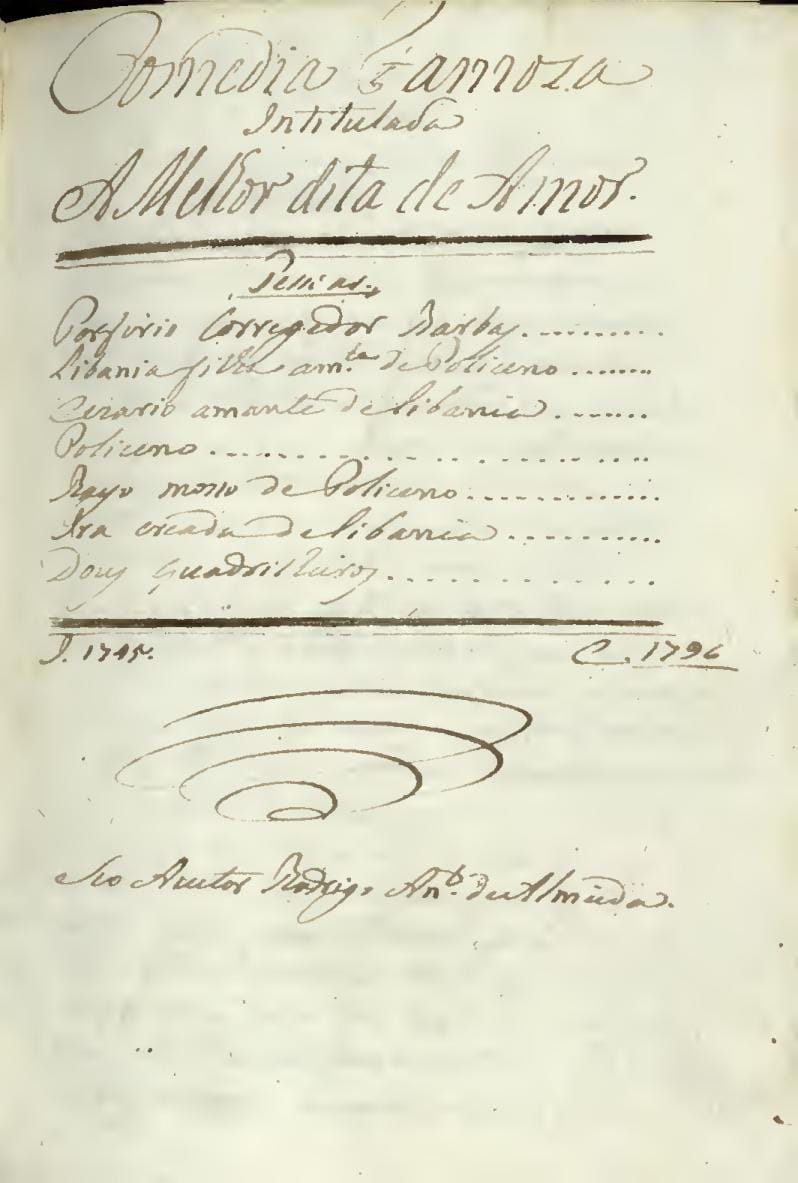 Comedia Famoza
Intitulada
A Melhor dita de Amor.
Pessoas.
Porfirio Corregedor Barbas..........
Libania filha am.te de Policeno........
Cezario amante de Libania........
Policeno.....................
Rayo mosso de Policeno.............
Ira creada de Libania............
Dous Quadrilheiros.............
J. 1795. C. 1796
Seo Auctor Rodrigo An.to de Almeida.